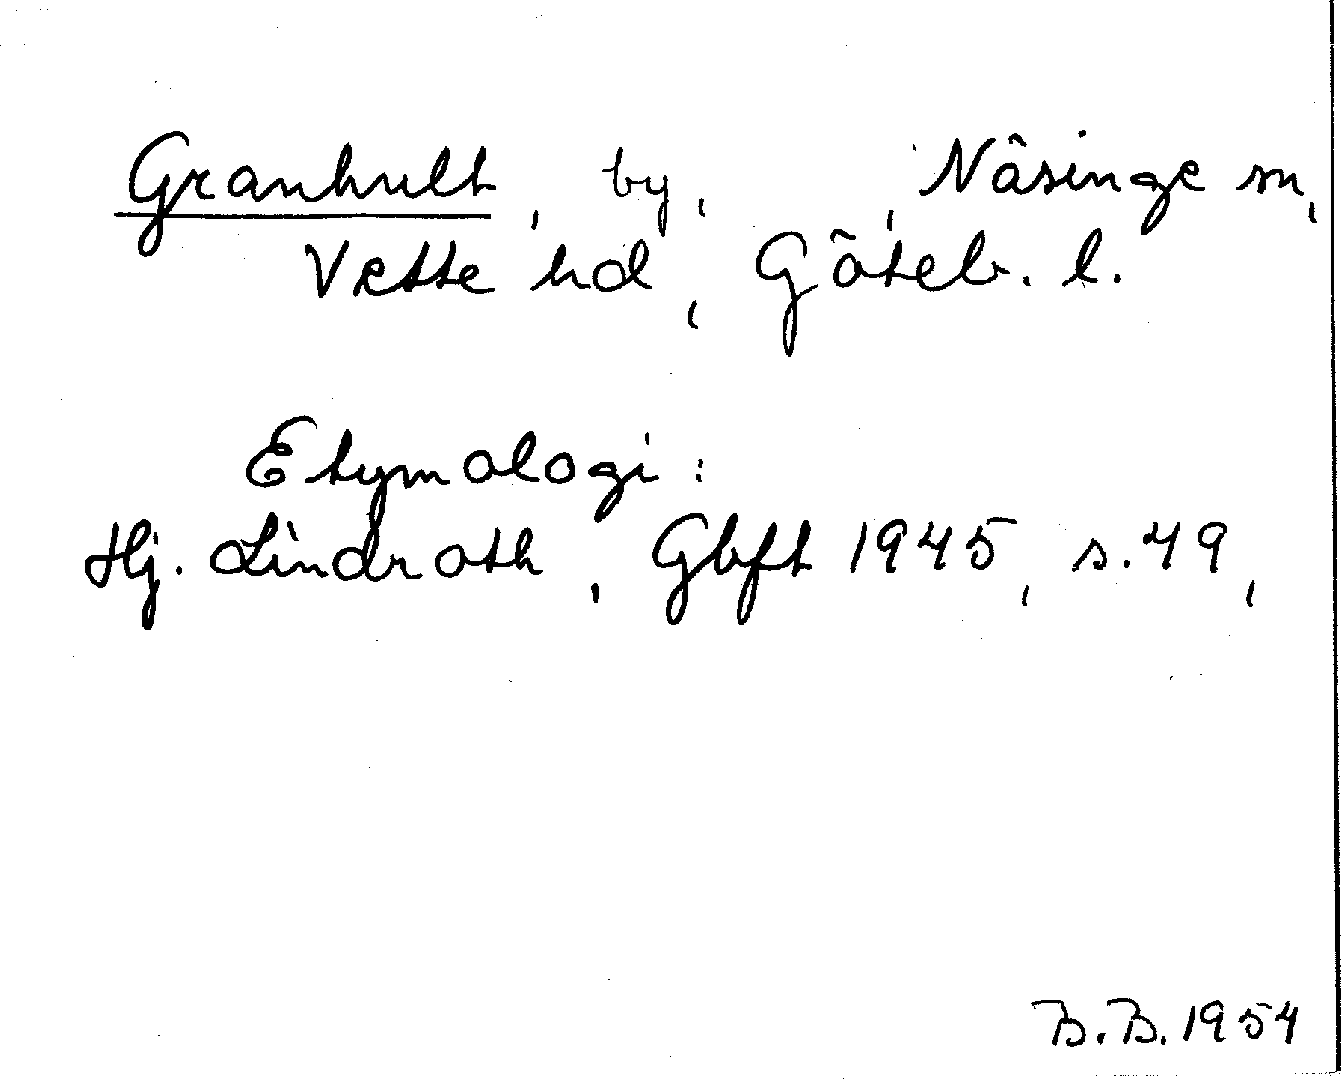 Granhult, by, , Näsinge sn,
Vette hd, Göteb. l.
Etymologi:
Hj. Lindroth, Gbft 1945, s. 49,
B.B. 1954